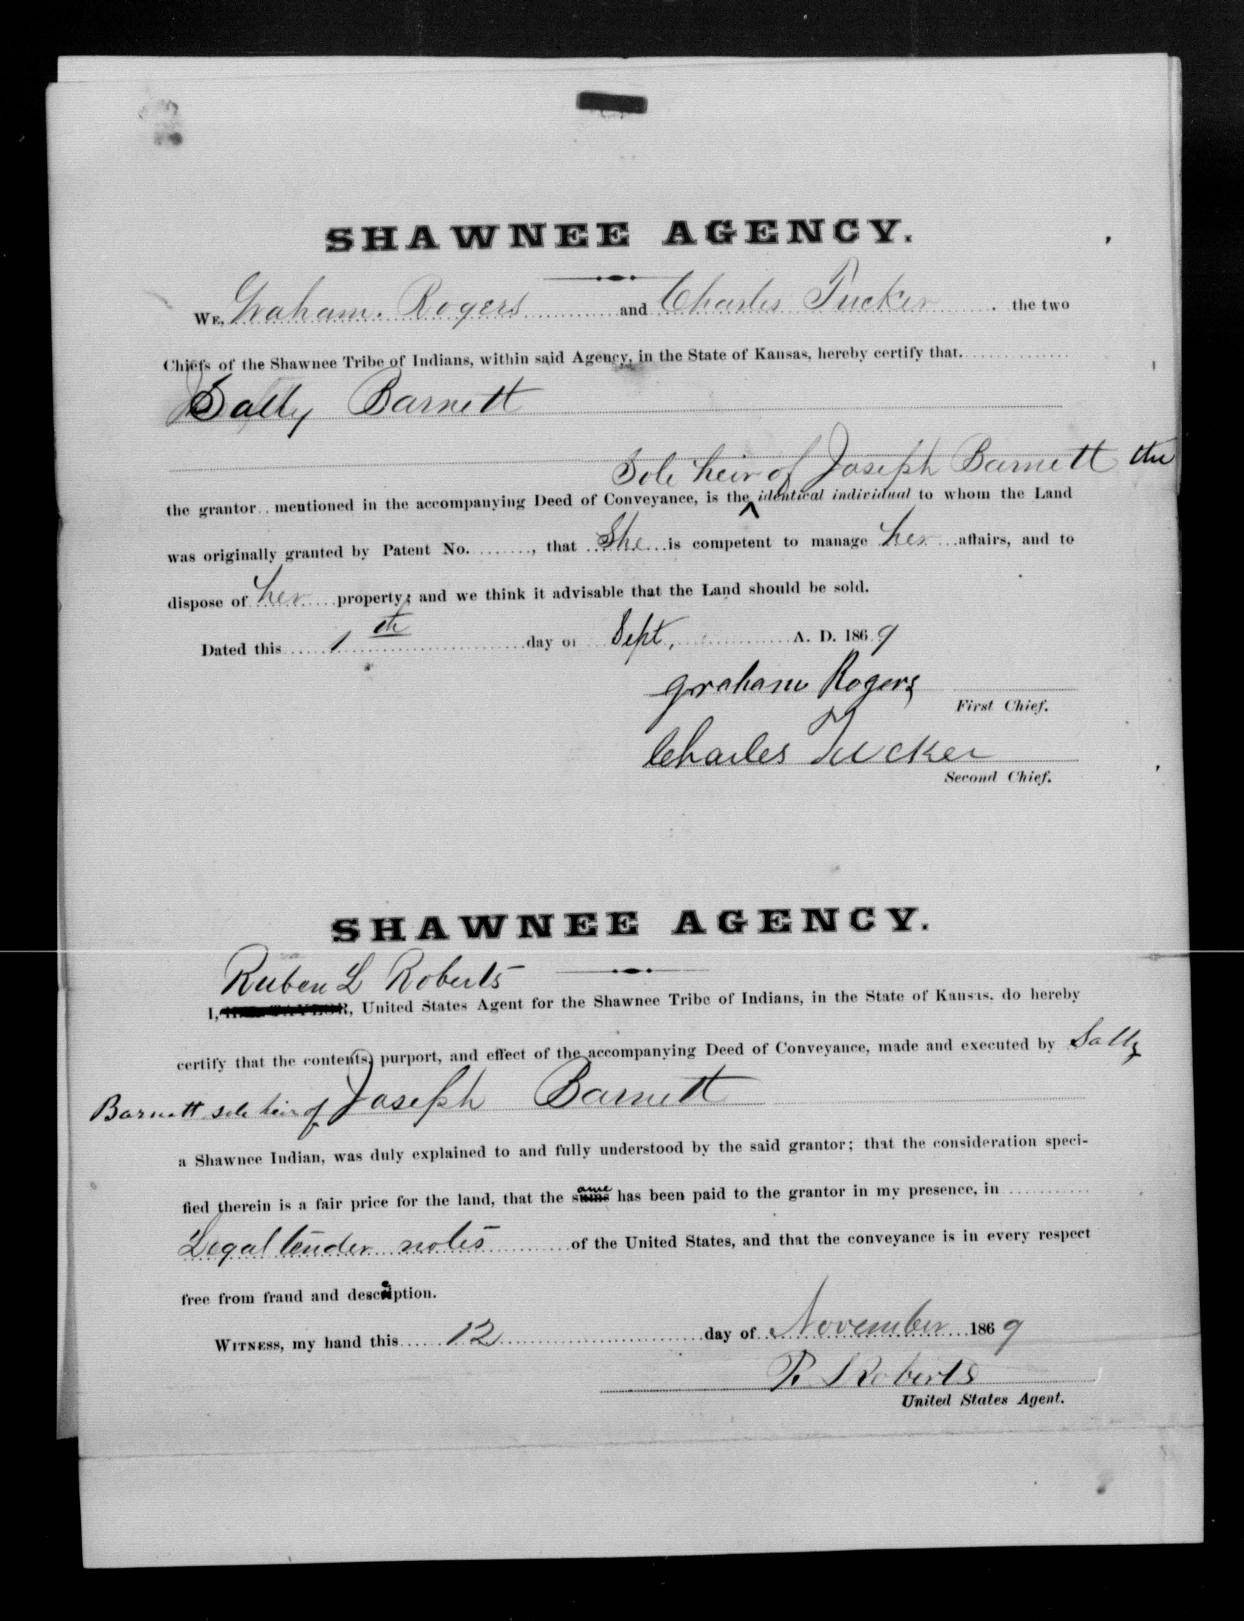 SHAWNEE AGENCY.
WE, Graham Rogers and Charles Tucker the two
Chiefs of the Shawnee Tribe of Indians, within said Agency, in the State of Kansas, hereby certify that
Sally Barnett
Sole heir of Joseph Barnett the
the grantor mentioned in the accompanying Deed of Conveyance, is the ^ identical individual to whom the Land
was originally granted by Patent No. ........, that She is competent to manage her affairs, and to
dispose of her property; and we think it advisable that the Land should be sold.
Dated this 1th day of Sept, A. D. 1869
Graham Rogers
First Chief.
Charles Tucker
Second Chief.
SHAWNEE AGENCY.
Ruben L Roberts
I, , United States Agent for the Shawnee Tribe of Indians, in the State of Kansas, do hereby
certify that the contents, purport, and effect of the accompanying Deed of Conveyance, made and executed by Sally
Barnett sole heir of Joseph Barnett
a Shawnee Indian, was duly explained to and fully understood by the said grantor; that the consideration speci-
fied therein is a fair price for the land, that the same has been paid to the grantor in my presence, in
Legal tender notes of the United States, and that the conveyance is in every respect
free from fraud and deception.
WITNESS, my hand this 12 day of November 1869
R L Roberts
United States Agent.